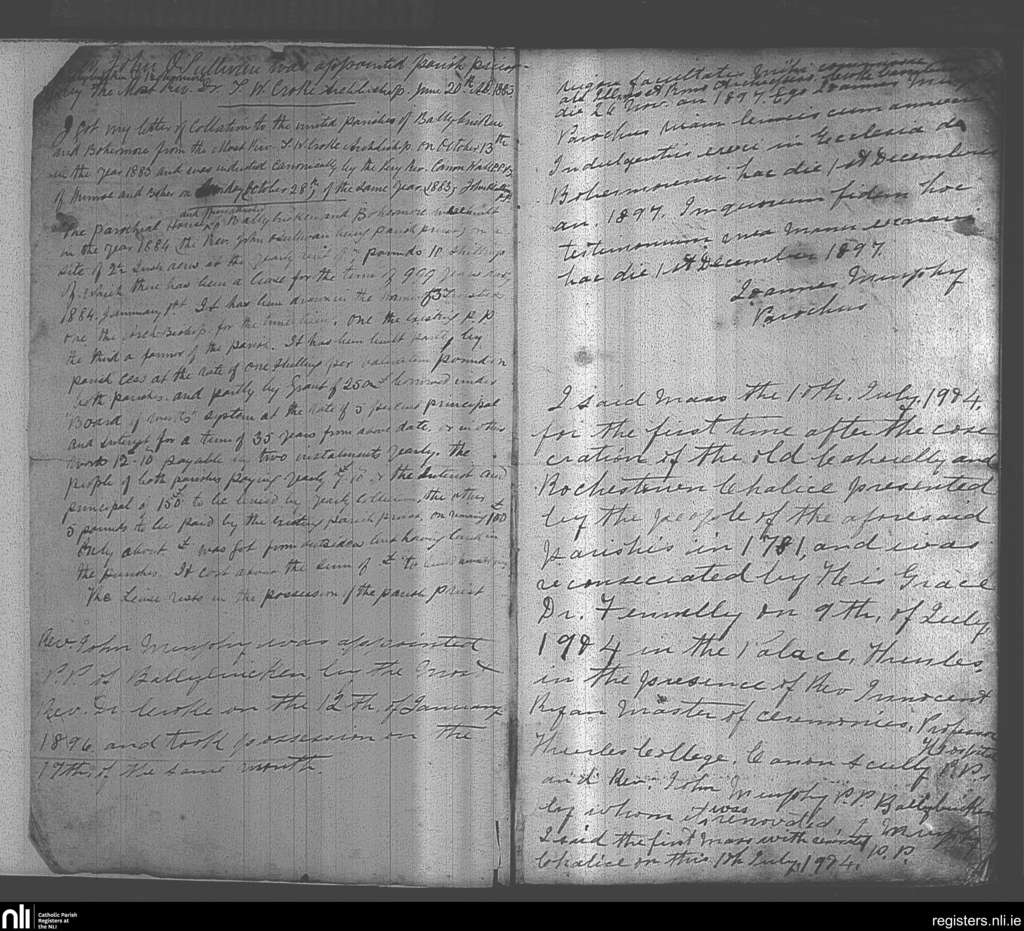 John O'Sullivan was appointed parish priest
by The Most Rev. Dr T. W. Croke Archbishop. June 20th AD. 1883
I got my letter of Collation to the united parishes of Ballybricken
and Bohermore from the Most Rev. T. W. Croke Archbishop. on October 13th
in the year 1883 and was inducted canonically by the Very Rev. Canon
of Murroe and Boher on Sunday October 28th, of the same year. 1883
The parochial House of Ballybricken and Bohermore was built
in the year 1884 the Rev. John O'Sullivan being parish priest, on a
site of 2 acres at the yearly rent of pounds 10 shillings
of which there has been a lease for the term of 999 years
1884. January 1st It has been drawn in the names of 3 Trustees
one the Archbishop. for the time being. one the existing P.P
the third a farmer of the parish. It has been built partly by
parish cess at the rate of one shilling per valuation pound in
both parishes. and partly by Grant of 250£ borrowed under
Board of works system at the rate of 5 percent principal
and interest for a term of 35 years from above date. or in other
words 12-10 payable in two instalments yearly. The
people of both parishes paying yearly £ 10 the Interest and
principal of 150£ to be by yearly collection, the other
5 pounds to be paid by the existing parish priest, on remaining £100
Only about £ was got from outsiders land in
the parishes. It cost the sum of £
The Lease rests in the possession of the parish priest
Rev. John Murphy was appointed
P.P. of Ballybricken, by the Most
Rev. Dr Croke on the 12th of January
1896 and took possession on the
17th of the same month.
facultate mihi
die 26 Nov. an 1897. Ego Joannes Murphy
Parochus viam crucis cum annexis
Indulgentiis erexi in Ecclesia de
Bohermore hac die 1st Decembris
an. 1897. In quorum fidem hoc
testimonium mea manu exaravi
hac die 1st December 1897.
Joannes Murphy
Parochus
I said Mass the 10th. July, 1904.
for the first time after the conse
cration of the old Caherelly and
Rochestown Chalice presented
by the people of the aforesaid
parishes in 1781, and was
reconsecrated by His Grace
Dr. Fennelly on 9th, of July
1904 in the Palace, Thurles,
in the presence of Rev Innocent
Ryan Master of ceremonies, Professor
Thurles College. Canon Scully P.P.
Hospital
and Rev. John Murphy P.P. Ballybricken
by whom it was renovated. J Murphy
I said the first Mass with Chalice P.P.
on this 10th July, 1904.
nli
Catholic Parish
Registers at
the NLI
registers.nli.ie